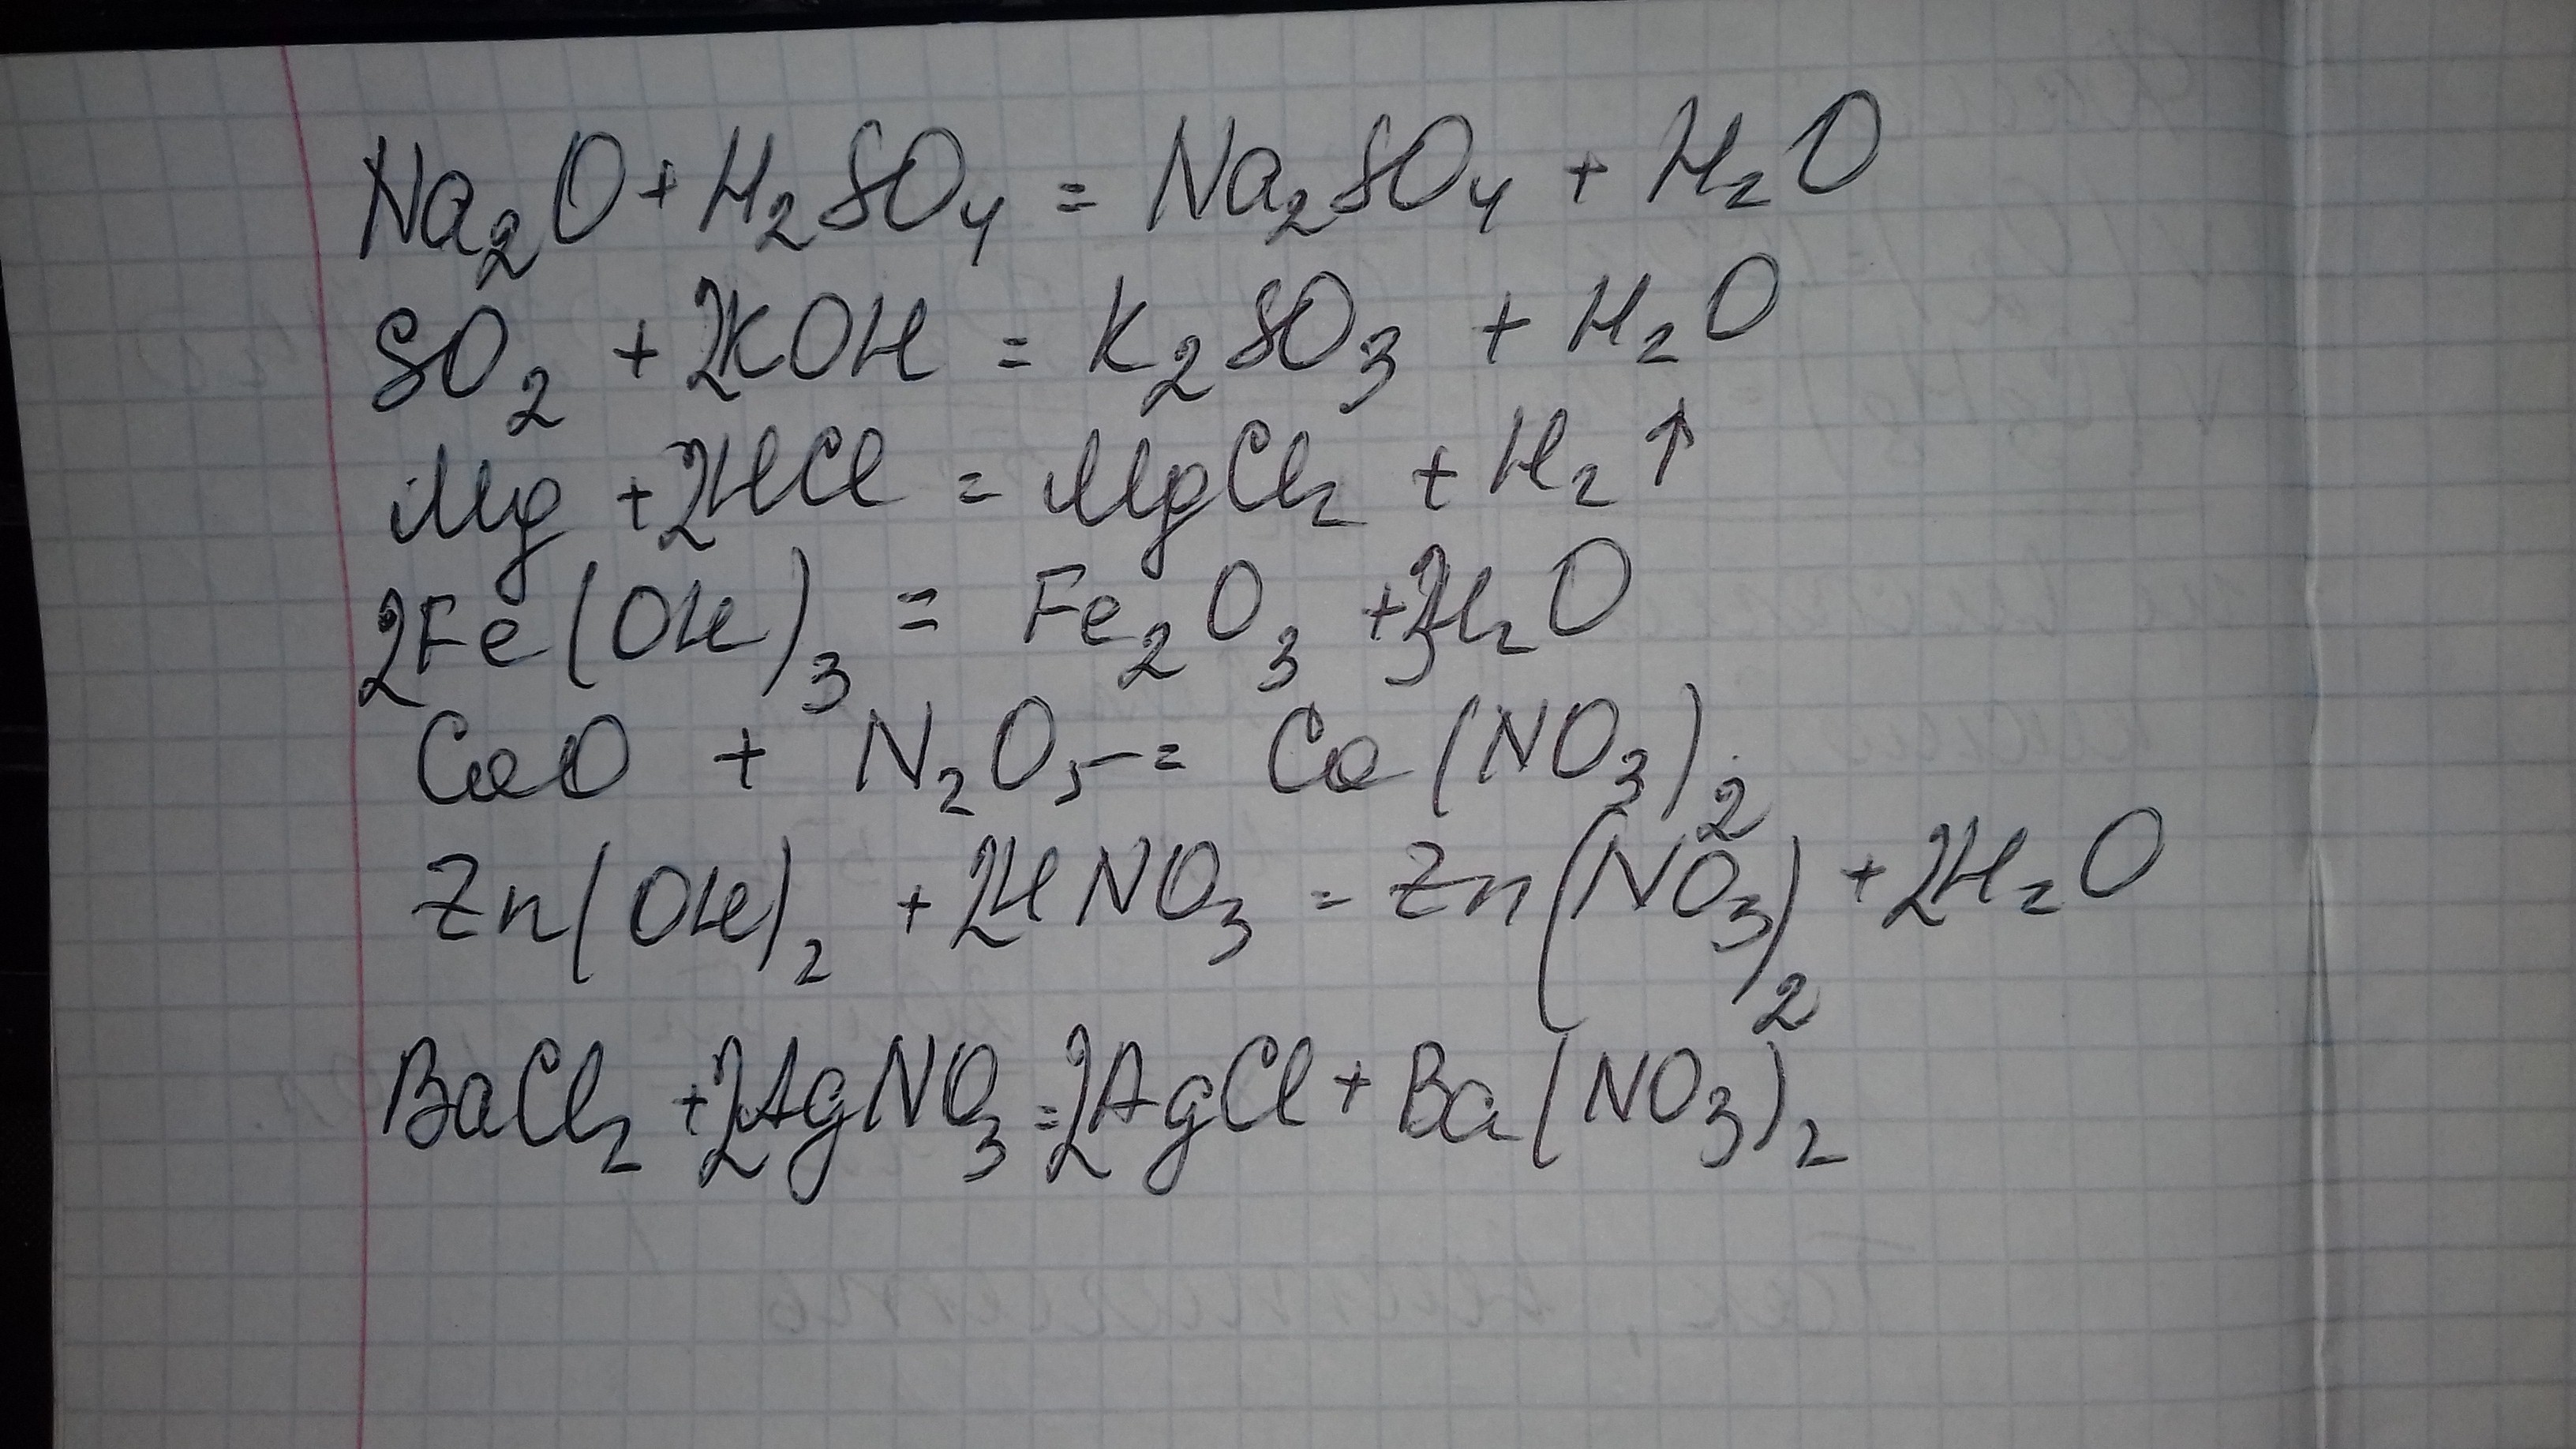 Na₂O + H₂SO₄ = Na₂SO₄ + H₂O
SO₂ + 2KOH = K₂SO₃ + H₂O
Mg + 2HCl = MgCl₂ + H₂↑
2Fe(OH)₃ = Fe₂O₃ + 3H₂O
CaO + N₂O₅ = Ca(NO₃)₂
Zn(OH)₂ + 2HNO₃ = Zn(NO₃)₂ + 2H₂O
BaCl₂ + 2AgNO₃ = 2AgCl + Ba(NO₃)₂